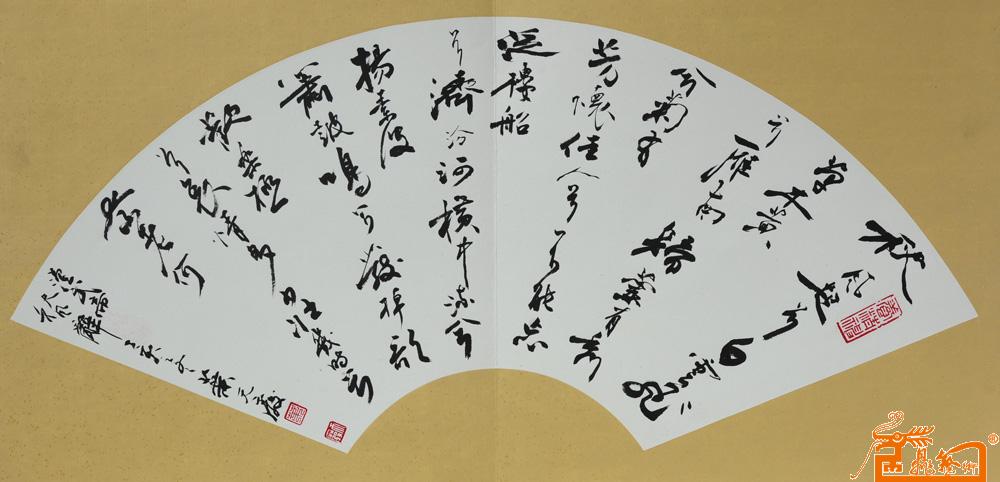 秋風起兮白雲飛
草木黃落
兮雁南歸蘭有秀
兮菊有
芳懷佳人兮不能忘
泛樓船
兮濟汾河橫中流兮
揚素波
簫鼓鳴兮發棹歌
歡樂極
兮哀情多少壯幾時兮
奈老何
漢武帝
秋風辭